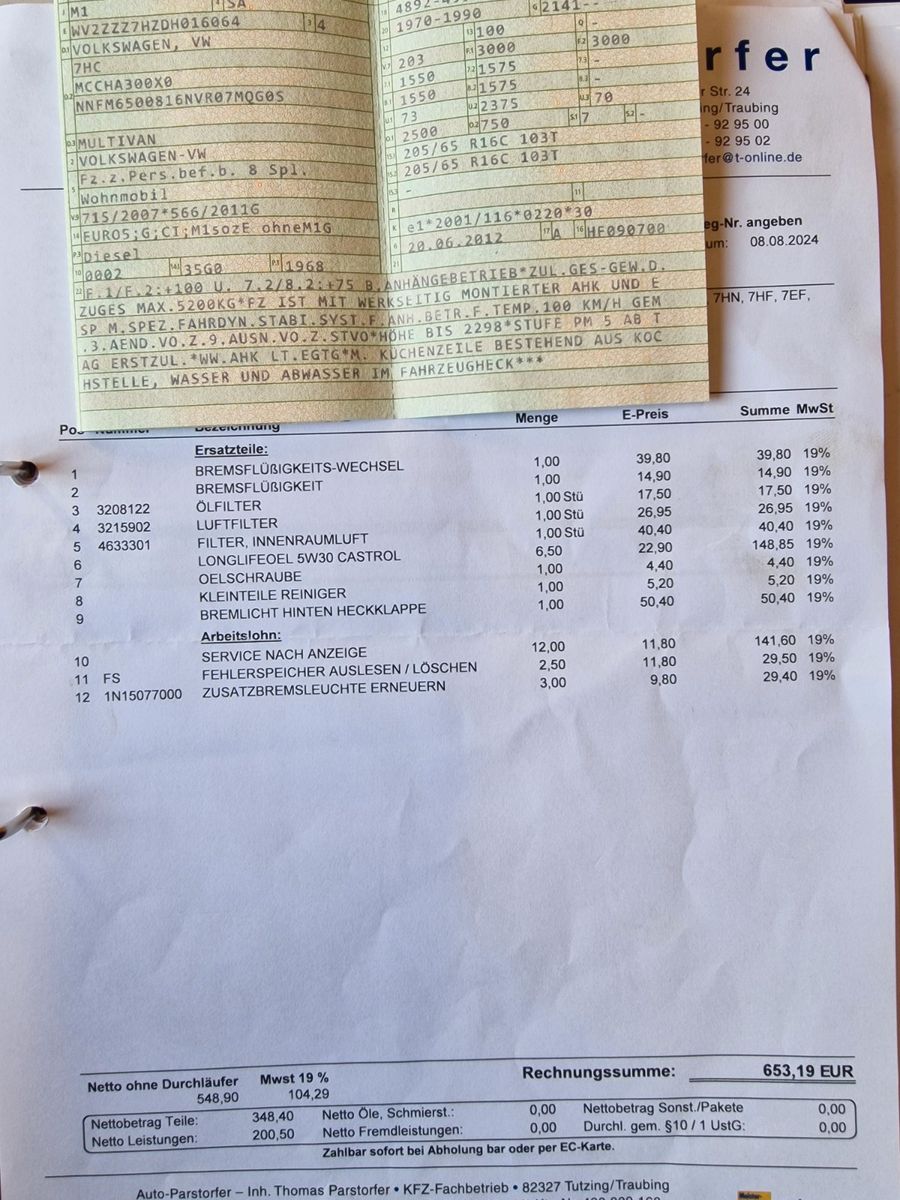 M1 SA
WV2ZZZ7HZDH016064 4
VOLKSWAGEN, VW
7HC
MCCHA300X0
NNFM6500816NVR07MQG0S
MULTIVAN
VOLKSWAGEN-VW
Fz.z.Pers.bef.b. 8 Spl.
Wohnmobil
715/2007*566/2011G
EURO5;G;CI;M1sozE ohneM1G
Diesel
0002 35G0 1968
2141--
1970-1990
100 -
203 3000 3000
1550 1575 -
1550 1575 -
73 2375 70
2500 750 7 -
205/65 R16C 103T
205/65 R16C 103T
-
e1*2001/116*0220*30
20.06.2012 A HF090700
F.1/F.2:+100 U. 7.2/8.2:+75 B.ANHÄNGEBETRIEB*ZUL.GES-GEW.D.
ZUGES MAX.5200KG*FZ IST MIT WERKSEITIG MONTIERTER AHK UND E
SP M.SPEZ.FAHRDYN.STABI.SYST.F.ANH.BETR.F.TEMP.100 KM/H GEM
.3.AEND.VO.Z.9.AUSN.VO.Z.STVO*HÖHE BIS 2298*STUFE PM 5 AB T
AG ERSTZUL.*WW.AHK LT.EGTG*M. KÜCHENZEILE BESTEHEND AUS KOC
HSTELLE, WASSER UND ABWASSER IM FAHRZEUGHECK***
rfer
r Str. 24
ing/Traubing
- 92 95 00
- 92 95 02
fer@t-online.de
eg-Nr. angeben
um: 08.08.2024
7HN, 7HF, 7EF,
Pos Bezeichnung Menge E-Preis Summe MwSt
Ersatzteile:
1 BREMSFLÜßIGKEITS-WECHSEL 1,00 39,80 39,80 19%
2 BREMSFLÜßIGKEIT 1,00 14,90 14,90 19%
3 3208122 ÖLFILTER 1,00 Stü 17,50 17,50 19%
4 3215902 LUFTFILTER 1,00 Stü 26,95 26,95 19%
5 4633301 FILTER, INNENRAUMLUFT 1,00 Stü 40,40 40,40 19%
6 LONGLIFEOEL 5W30 CASTROL 6,50 22,90 148,85 19%
7 OELSCHRAUBE 1,00 4,40 4,40 19%
8 KLEINTEILE REINIGER 1,00 5,20 5,20 19%
9 BREMLICHT HINTEN HECKKLAPPE 1,00 50,40 50,40 19%
Arbeitslohn:
10 SERVICE NACH ANZEIGE 12,00 11,80 141,60 19%
11 FS FEHLERSPEICHER AUSLESEN / LÖSCHEN 2,50 11,80 29,50 19%
12 1N15077000 ZUSATZBREMSLEUCHTE ERNEUERN 3,00 9,80 29,40 19%
Netto ohne Durchläufer Mwst 19 % Rechnungssumme: 653,19 EUR
548,90 104,29
Nettobetrag Teile: 348,40 Netto Öle, Schmierst.: 0,00 Nettobetrag Sonst./Pakete 0,00
Netto Leistungen: 200,50 Netto Fremdleistungen: 0,00 Durchl. gem. §10 / 1 UstG: 0,00
Zahlbar sofort bei Abholung bar oder per EC-Karte.
Auto-Parstorfer – Inh. Thomas Parstorfer • KFZ-Fachbetrieb • 82327 Tutzing/Traubing